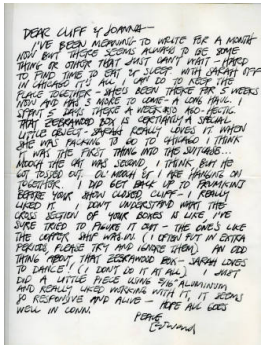 DEAR CLIFF & JOANNA—
I'VE BEEN MEANING TO WRITE FOR A MONTH
NOW BUT THERE SEEMS ALWAYS TO BE SOME
THING OR OTHER THAT JUST CAN'T WAIT - HARD
TO FIND TIME TO EAT & SLEEP WITH SARAH OFF
IN CHICAGO IT'S ALL I CAN DO TO KEEP THE
PLACE TOGETHER - SHE'S BEEN THERE FOR 5 WEEKS
NOW AND HAS 3 MORE TO COME - A LONG HAUL. I
SPENT 5 DAYS THERE A WEEK AGO - HECTIC.
THAT ZEBRAWOOD BOX IS CERTAINLY A SPECIAL
LITTLE OBJECT - SARAH REALLY LOVES IT. WHEN
SHE WAS PACKING TO GO TO CHICAGO I THINK
IT WAS THE FIRST THING INTO THE SUITCASE -
MOOCH THE CAT WAS SECOND, I THINK BUT HE
GOT TOSSED OUT. OL' MOOCH & I ARE HANGING ON
TOGETHER. I DID GET BACK UP TO
BEFORE YOUR SHOW CLOSED CLIFF - I REALLY
LIKED IT. I DON'T UNDERSTAND WHAT THE
CROSS SECTION OF YOUR BOXES IS LIKE, I'VE
SURE TRIED TO FIGURE IT OUT - THE ONE'S LIKE
THE COPPER SHE WAS IN. (I OFTEN PUT IN EXTRA
PLEASE TRY AND IGNORE THEM) AN ODD
THING ABOUT THAT ZEBRAWOOD BOX - SARAH LOVES
TO DANCE! (I DON'T DO IT AT ALL) I JUST
DID A LITTLE PIECE USING 5/16" ALUMINUM
AND REALLY LIKED WORKING WITH IT, IT SEEMS
SO RESPONSIVE AND ALIVE - HOPE ALL GOES
WELL IN CONN.
PEACE